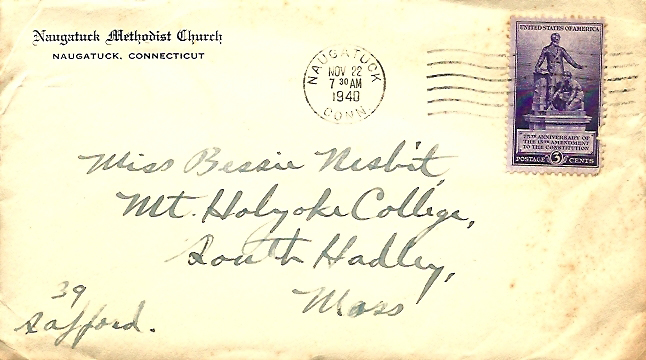 Naugatuck Methodist Church
NAUGATUCK, CONNECTICUT
NAUGATUCK
NOV 22
7 30 AM
1940
CONN.
UNITED STATES OF AMERICA
75TH ANNIVERSARY OF
THE 13TH AMENDMENT
TO THE CONSTITUTION
POSTAGE 3 CENTS
Miss Bessie Nesbit,
Mt. Holyoke College,
South Hadley,
Mass
39
Safford.